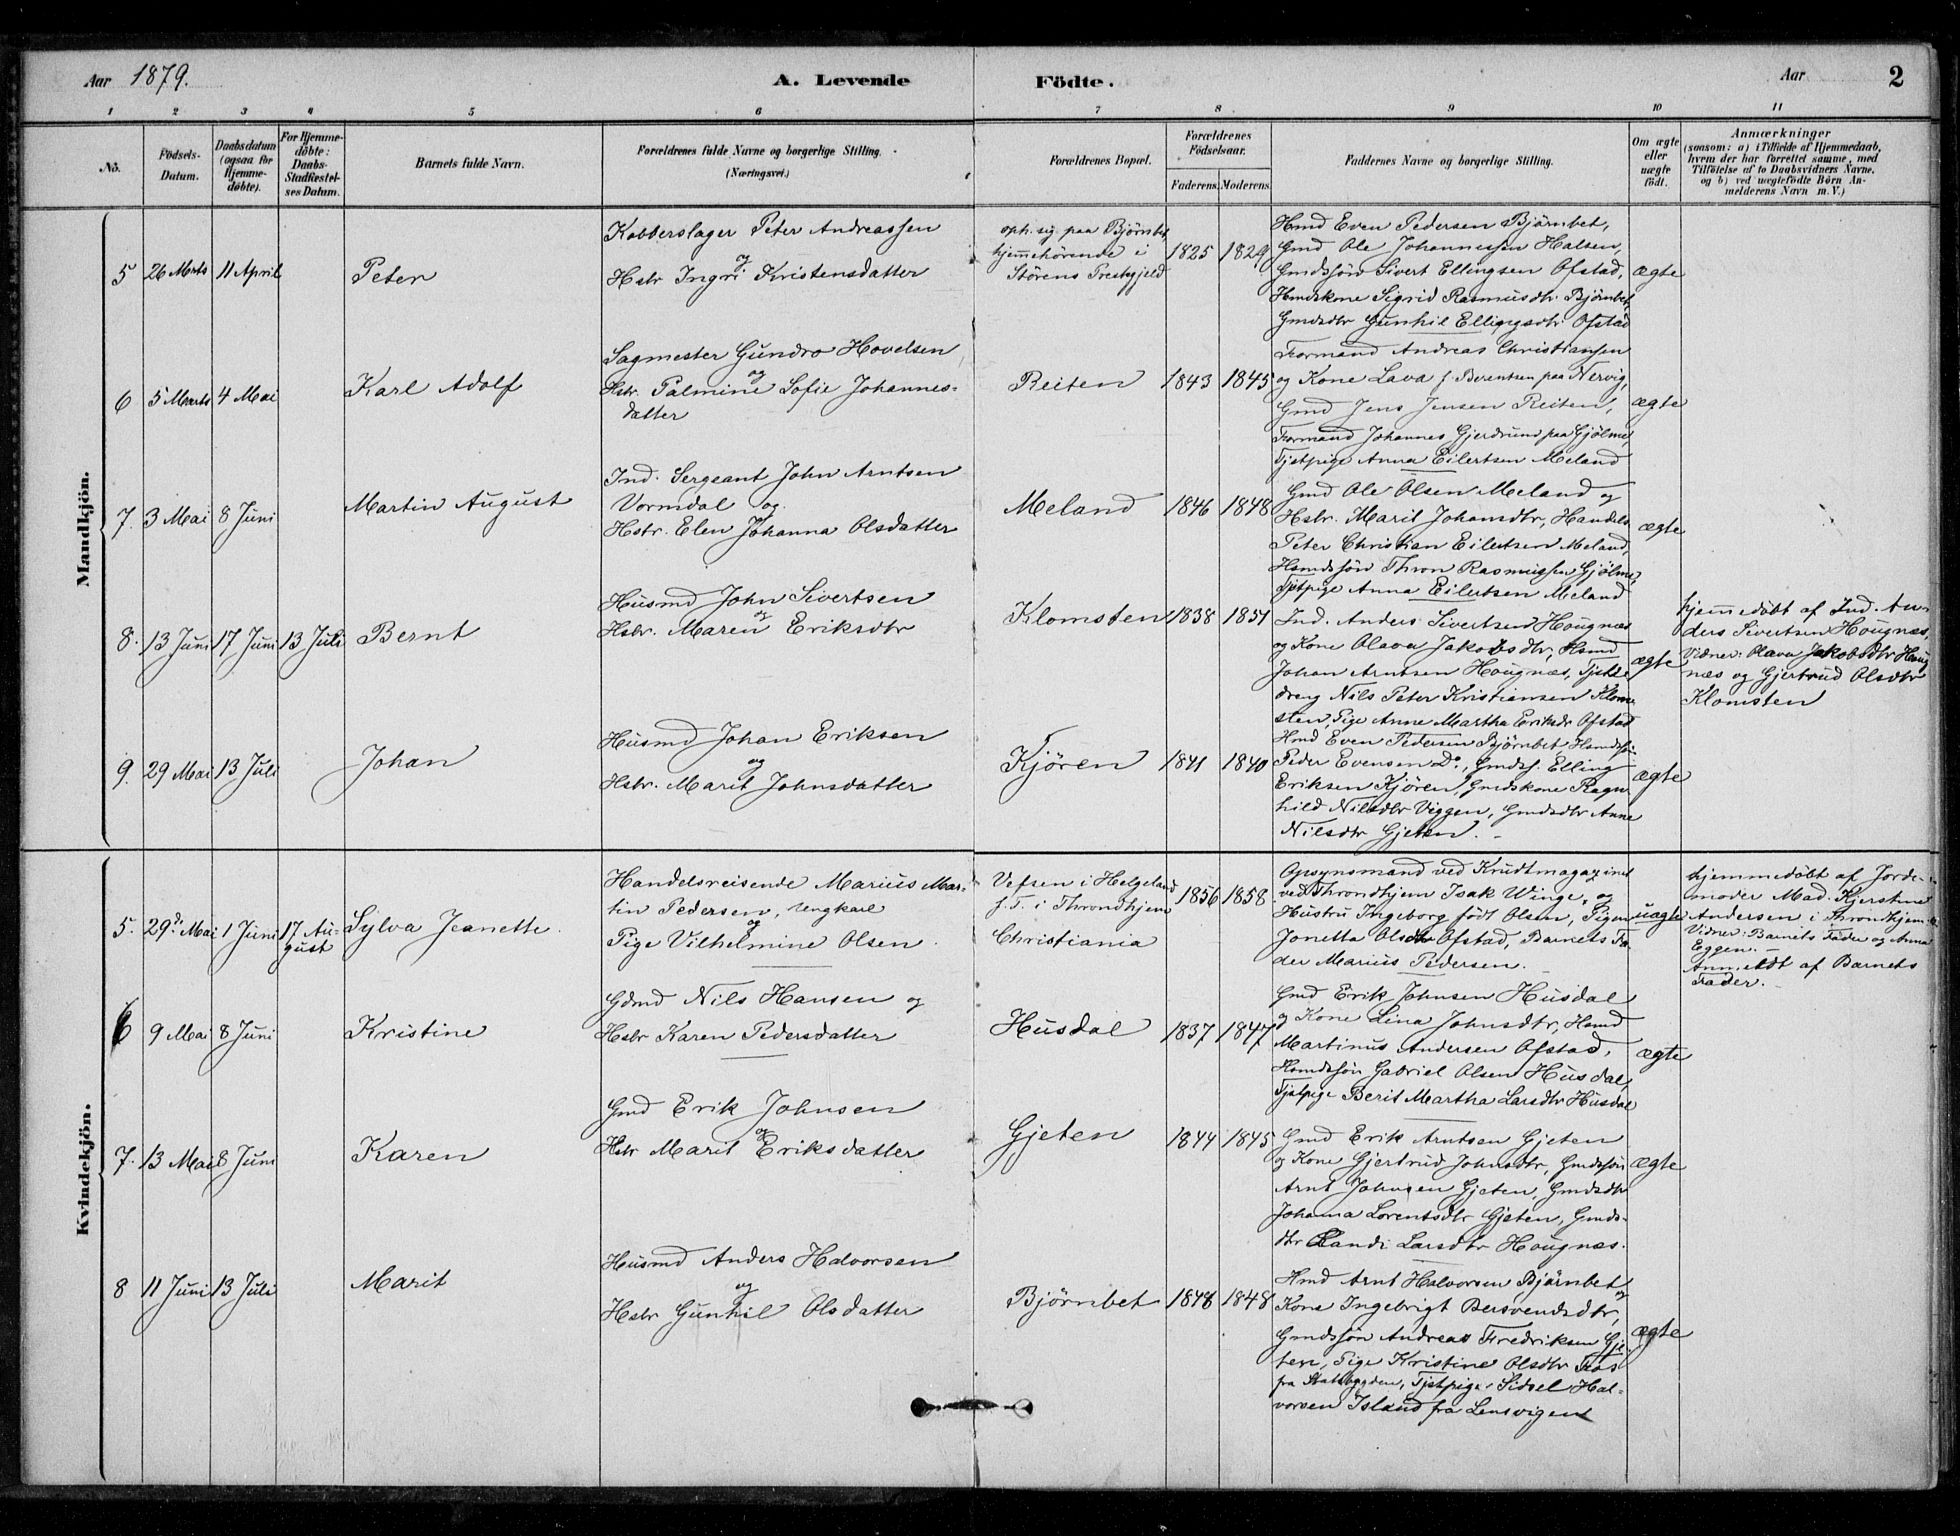 Aar 1879. A. Levende Födte. Aar 2
1 2 3 4 5 6 7 8 9 10 11
No. Födsels-Datum. Daabsdatum (ogsaa for Hjemmedöbte). For Hjemmedöbte: Daabs-Stadfæstelses Datum. Barnets fulde Navn. Forældrenes fulde Navne og borgerlige Stilling. (Næringsvei.) Forældrenes Bopæl. Forældrenes Födselsaar. Faderens. Moderens. Faddernes Navne og borgerlige Stilling. Om ægte eller uægte födt. Anmærkninger (saasom: a) i Tilfælde af Hjemmedaab, hvem der har forrettet samme, med Tilföielse af to Daabsvidners Navne, og b) ved uægtefödte Börn Anmelderens Navn m.V.)
Mandkjön.
5 26 Marts 11 April Peter
Kobberslager Peter Andreassen
og
Hstr Ingri Kristensdatter
oph. sig paa Bjørnbet,
hjemmehörende i
Störens Præstegjeld
1825 1829
Hmd Even Pedersen Bjørnbet,
Gmd Ole Johannessen Halsen,
Gmdssön Sivert Ellingsen Ofstad,
Hmdskone Sigrid Rasmusdtr. Bjørnbet,
Gmdsdtr Gunhil Ellingsdtr Ofstad
ægte
6 5 Marts 4 Mai Karl Adolf
Sagmester Gundro Hovelsen
og
Hstr. Palmine Sofie Johannes-
datter
Reiten 1843 1845
Formand Andreas Christiansen
og Kone Lava f. Berentsen paa Nervig,
Gmd Jens Jensen Reiten,
Formand Johannes Gjerdrund paa Gjölme,
Tjstpige Anna Eilertsen Meland
ægte
7. 3 Mai 8 Juni Martin August
Ind. Sergeant John Arntsen
Vormdal og
Hstr. Elen Johanna Olsdatter
Meland 1846 1848
Gmd Ole Olsen Meland og
Hstr. Marit Johansdtr, Handels.
Peter Christian Eilertsen Meland,
Hsmdssön Thron Rasmussen Gjölme,
Tjstpige Anna Eilertsen Meland
ægte
8. 13 Juni 17 Juni 13 Juli Bernt
Husmd John Sivertsen
og
Hstr. Maren Eriksdtr
Klomsten 1838 1851
Ind. Anders Sivertsen Hougnæs
og Kone Olava Jakobsdtr, Hsmd
Johan Arntsen Hougnæs, Tjste
dreng Nils Peter Kristiansen Klom-
sten, Pige Anne Martha Eriksdr Ofstad
ægte
hjemmedöbt af Ind. An-
ders Sivertsen Hougnæs,
Vidner: Olava Jakobsdtr Houg
næs og Gjertrud Olsdtr
Klomsten
9. 29 Mai 13 Juli Johan
Husmd Johan Eriksen
og
Hstr. Marit Johnsdatter
Kjören 1841 1840
Hmd Even Pedersen Bjørnbet, Hsmdssön
Peder Evensen Do., Gmdss. Elling
Eriksen Kjören, Gmdskone Ragn-
hild Nilsdtr Viggen, Gmdsdtr Anne
Nilsdtr Gjeten.
ægte
Kvindekjön.
5. 29de Mai 1 Juni 17 Au-
gust
Sylva Jeanette.
Handelsreisende Marius Mar-
tin Pedersen, Ungkarl
og
Pige Vilhelmine Olsen.
Vefsen i Helgeland
f. T. i Throndhjem
Christiania
1856 1858
Opsynsmand ved Krudtmagazinet
ved Throndhjem Isak Winge, og
Hustru Ingeborg født Olsen, Pigen
Jonetta Olsdtr Ofstad, Barnets Fa-
der Marius Pedersen.
uægte
hjemmedöbt af Jorde-
moder Mad. Kjerstine
Andersen i Throndhjem.
Vidner: Barnets Fader og Anna
Eggen.
Anmeldt af Barnets
Fader.
6 9 Mai 8 Juni Kristine
Gdmd Nils Hansen og
Hstr Karen Pedersdatter
Husdal 1837 1847
Gmd Erik Johnsen Husdal
og Kone Lina Johnsdtr, Hsmd
Martinus Andersen Ofstad,
Hsmdssön Gabriel Olsen Husdal,
Tjstpige Berit Martha Larsdtr Husdal
ægte
7. 13 Mai 8 Juni Karen
Gmd Erik Johnsen
og
Hstr Marit Eriksdatter
Gjeten 1844 1845
Gmd Erik Arntsen Gjeten
og Kone Gjertrud Johnsdtr, Gmdssön
Arnt Johnsen Gjeten, Gmdsdtr
Johanna Lorentsdtr Gjeten, Gmds-
dtr Randi Larsdtr Hougnæs.
ægte
8 11 Juni 13 Juli Marit
Husmd Anders Halvorsen
og
Hstr Gunhil Olsdatter
Bjørnbet 1848 1848
Hmd Arnt Halvorsen Bjørnbet
og
Kone Ingebrigt Bersvendsdtr,
Gmdssön Andreas Fredriksen Gje-
ten, Pige Kristine Olsdtr Fros
fra Stadsbygden, Tjstpige Sidsel Hal-
vorsen Island fra Lensvigen
ægte